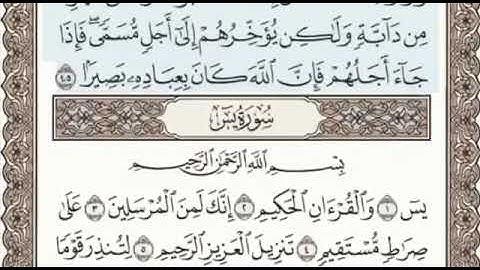 مِن دَآبَّةٍ وَلَٰكِن يُؤَخِّرُهُمْ إِلَىٰٓ أَجَلٍ مُّسَمًّى ۖ فَإِذَا
جَآءَ أَجَلُهُمْ فَإِنَّ ٱللَّهَ كَانَ بِعِبَادِهِۦ بَصِيرًۢا ٤٥
سُورَةُ يسٓ
بِسْمِ ٱللَّهِ ٱلرَّحْمَٰنِ ٱلرَّحِيمِ
يسٓ ١ وَٱلْقُرْءَانِ ٱلْحَكِيمِ ٢ إِنَّكَ لَمِنَ ٱلْمُرْسَلِينَ ٣ عَلَىٰ
صِرَٰطٍ مُّسْتَقِيمٍ ٤ تَنزِيلَ ٱلْعَزِيزِ ٱلرَّحِيمِ ٥ لِتُنذِرَ قَوْمًا